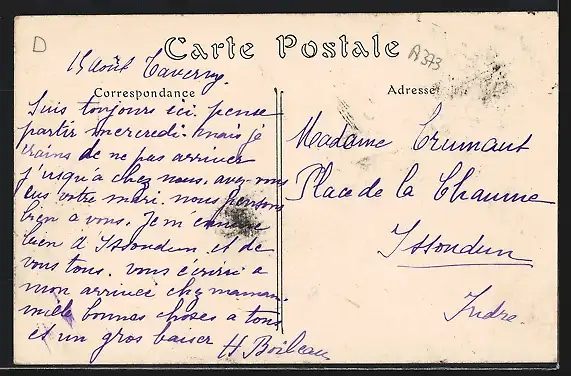 D
Carte Postale
A373
15 août Taverny
Correspondance
Adresse
Suis toujours ici. pense
partir mercredi. mais je
crains de ne pas arriver
j'usqu'à chez nous. avez-vous
eus votre mari. nous pensons
bien a vous. Je m'ennuie
bien d'Issoudun et de
vous tous. vous écrirai a
mon arrivée chez maman.
mille bonnes choses a tous
et un gros baiser H Boileau
Madame Trumaut
Place de la Chaume
Issoudun
Indre.